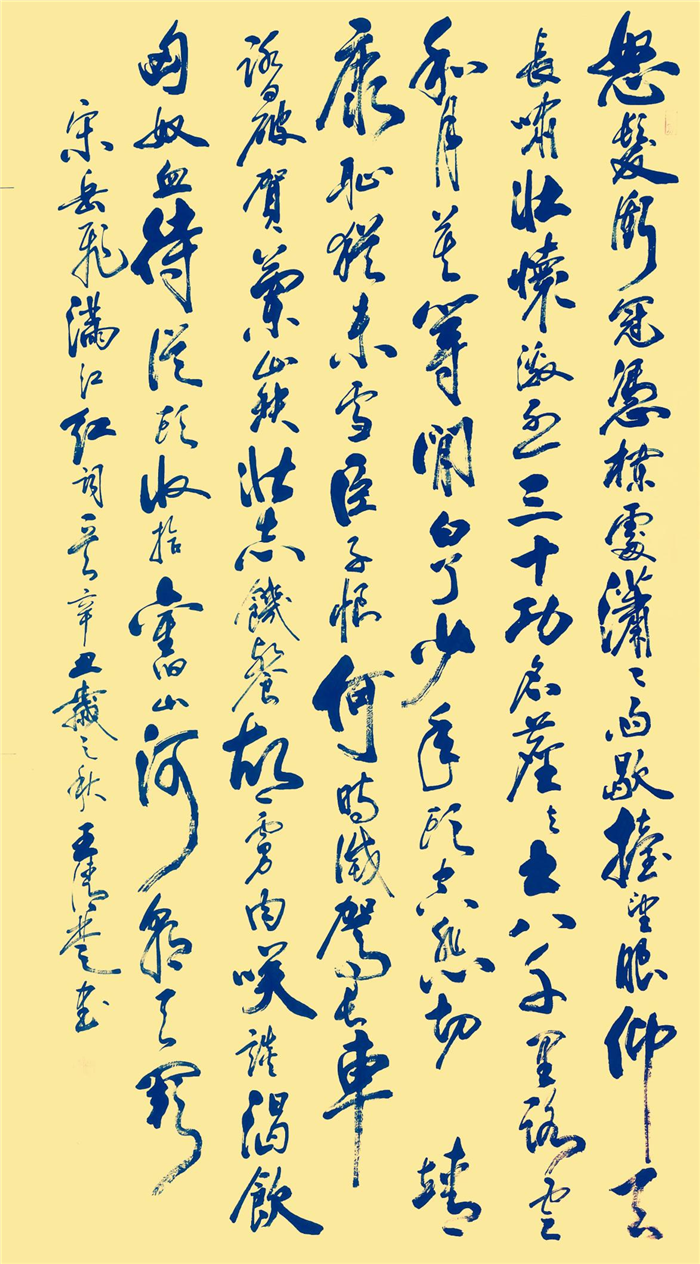 怒髮衝冠憑欄處瀟〻雨歇擡望眼仰天
長嘯壯懷激烈三十功名塵与土八千里路雲
和月莫等閒白了少年頭空悲切 靖
康恥猶未雪臣子恨何時滅駕長車
踏破賀蘭山缺壯志饑餐胡虜肉笑談渴飲
匈奴血待從頭收拾舊山河朝天闕
宋岳飛滿江紅詞一首辛丑歲之秋王書